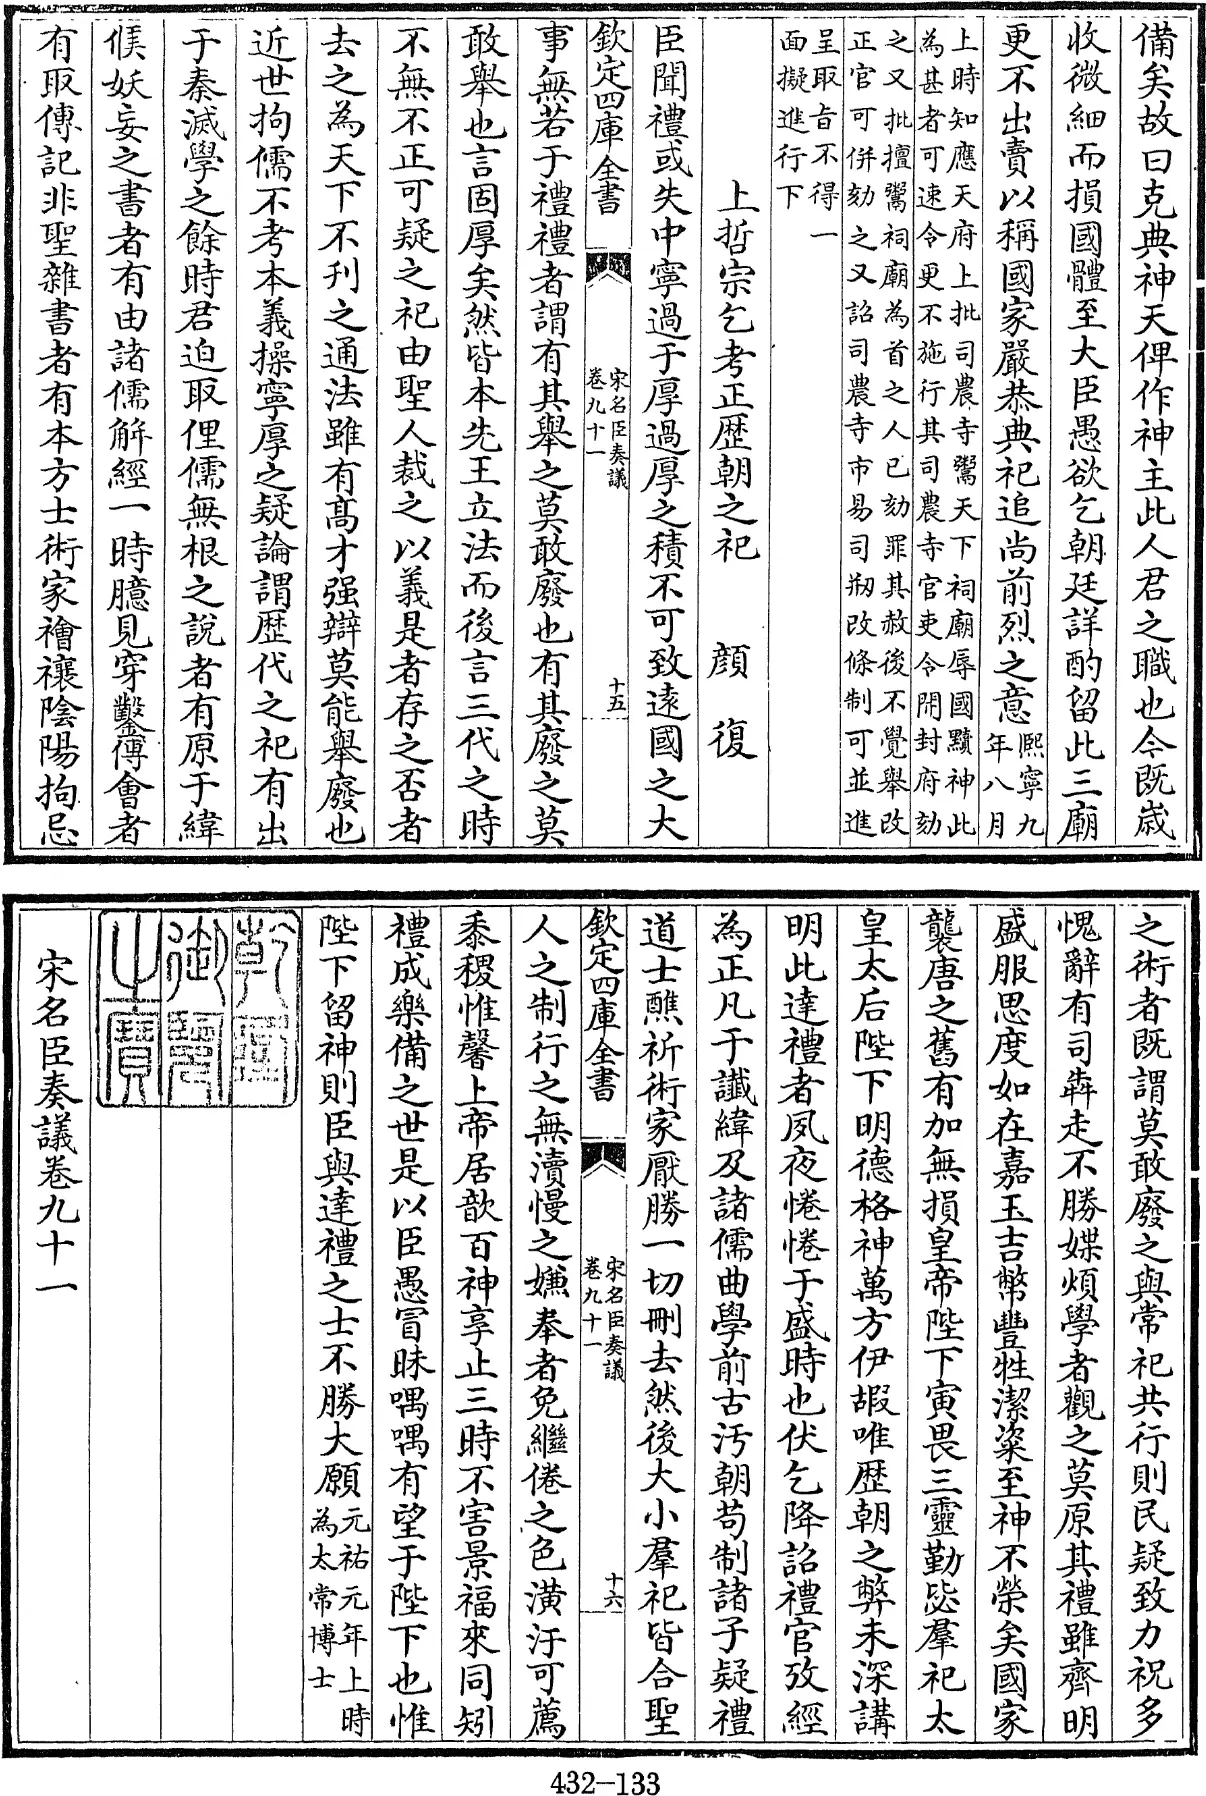 備矣故曰克典神天俾作神主此人君之職也今既嵗
收微細而損國體至大臣愚欲乞朝廷詳酌留此三廟
更不出賣以稱國家嚴恭典祀追尚前烈之意熙寧九
年八月
上時知應天府上批司農寺鬻天下祠廟辱國黷神此
為甚者可速令更不施行其司農寺官吏令開封府劾
之又批擅鬻祠廟為首之人已劾罪其赦後不覺舉改
正官可併劾之又詔司農寺市易司剏改條制可並進
呈取旨不得一
面擬進行下
上哲宗乞考正歴朝之祀　顔復
臣聞禮或失中寧過于厚過厚之積不可致逺國之大
欽定四庫全書
宋名臣奏議
卷九十一
十五
事無若于禮禮者謂有其舉之莫敢廢也有其廢之莫
敢舉也言固厚矣然皆本先王立法而後言三代之時
不無不正可疑之祀由聖人裁之以義是者存之否者
去之為天下不刋之通法雖有髙才强辯莫能舉廢也
近世拘儒不考本義操寧厚之疑論謂歴代之祀有出
于秦滅學之餘時君迫取俚儒無根之說者有原于緯
候妖妄之書者有由諸儒解經一時臆見穿鑿傅會者
有取傳記非聖雜書者有本方士術家禬禳陰陽拘忌
之術者既謂莫敢廢之與常祀共行則民疑致力祝多
愧辭有司犇走不勝媟煩學者觀之莫原其禮雖齊明
盛服思度如在嘉玉吉幣豐牲潔粢至神不榮矣國家
襲唐之舊有加無損皇帝陛下寅畏三靈勤毖羣祀太
皇太后陛下明德格神萬方伊嘏唯歴朝之弊未深講
明此達禮者夙夜惓惓于盛時也伏乞降詔禮官攷經
為正凡于讖緯及諸儒曲學前古汚朝苟制諸子疑禮
道士醮祈術家厭勝一切刪去然後大小羣祀皆合聖
欽定四庫全書
宋名臣奏議
卷九十一
十六
人之制行之無瀆慢之嫌奉者免繼倦之色潢汙可薦
黍稷惟馨上帝居歆百神享止三時不害景福來同矧
禮成樂備之世是以臣愚冒昧喁喁有望于陛下也惟
陛下留神則臣與達禮之士不勝大願元祐元年上時
為太常博士
乾隆
御覽
之寶
宋名臣奏議卷九十一
432-133